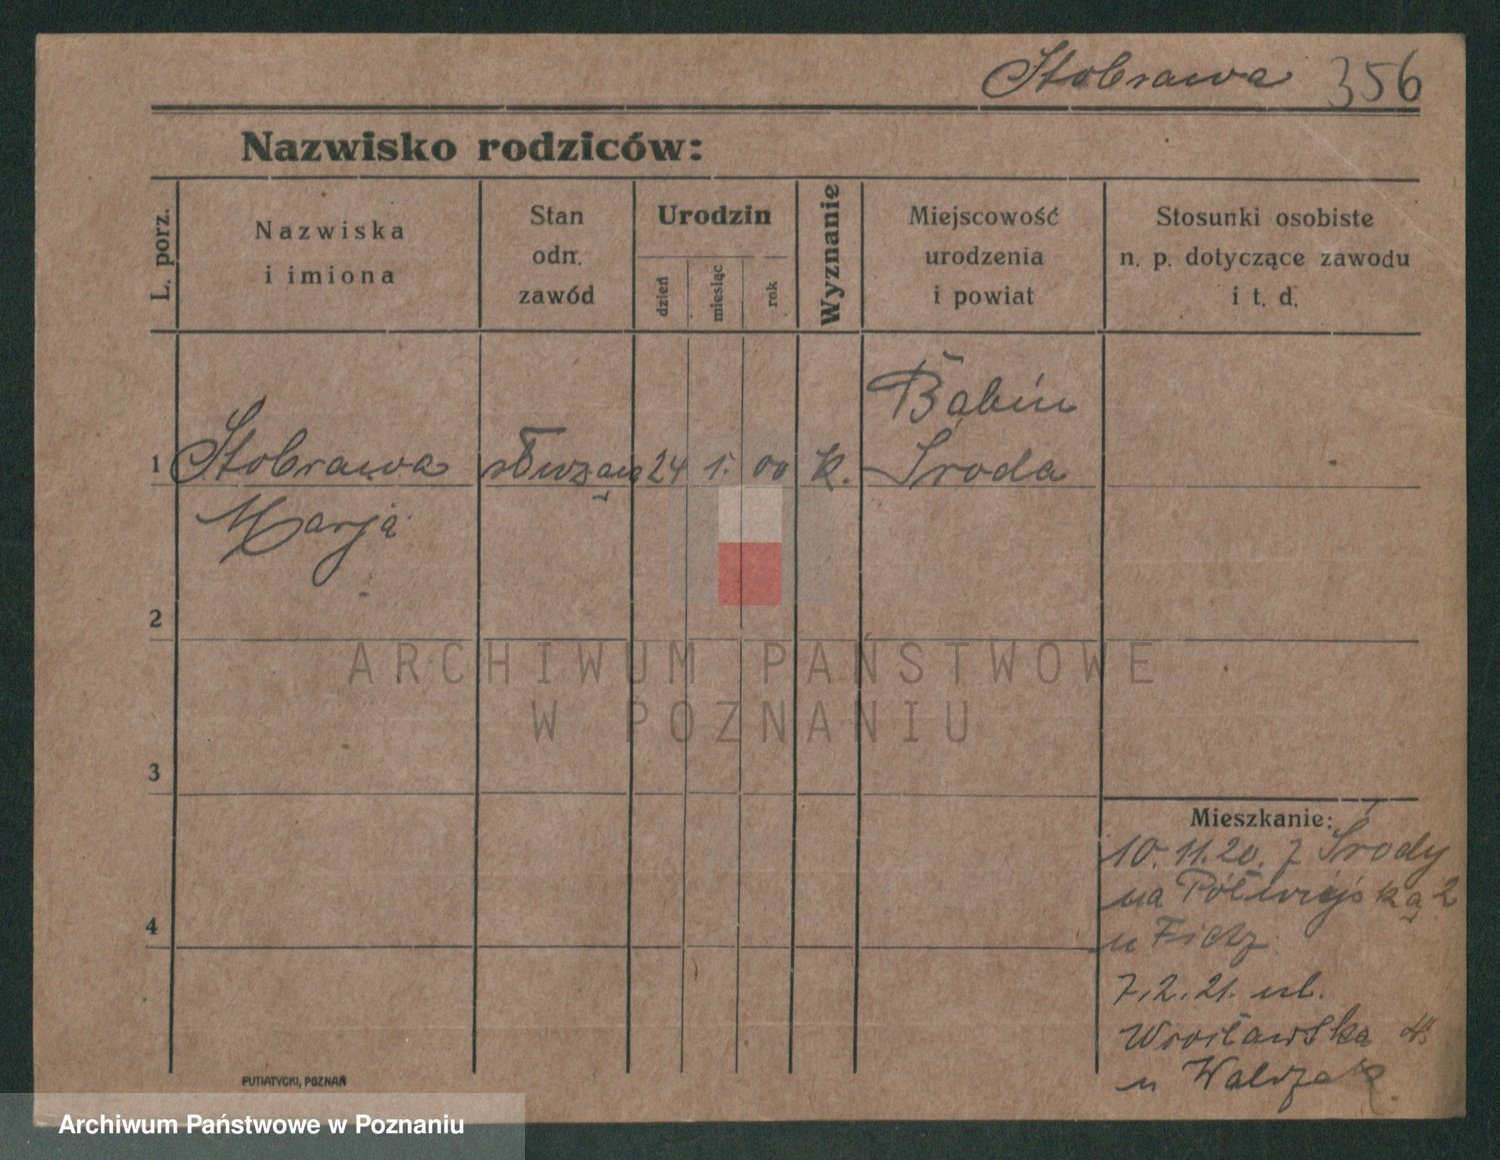 Stobrawa 356
Nazwisko rodziców:
L. porz.
Nazwiska
i imiona
Stan
odn.
zawód
Urodzin
dzień
miesiąc
rok
Wyznanie
Miejscowość
urodzenia
i powiat
Stosunki osobiste
n. p. dotyczące zawodu
i t. d.
Bąbin
1 Stobrawa służąca 24 1. 00 k. Środa
Marja
2
ARCHIWUM PAŃSTWOWE
W POZNANIU
3
Mieszkanie:
10.11.20. z Środy
na Półwiejską 2
4
u
7.2.21. ul.
Wrocławska
u Walczak
PUTIATYCKI, POZNAŃ
Archiwum Państwowe w Poznaniu